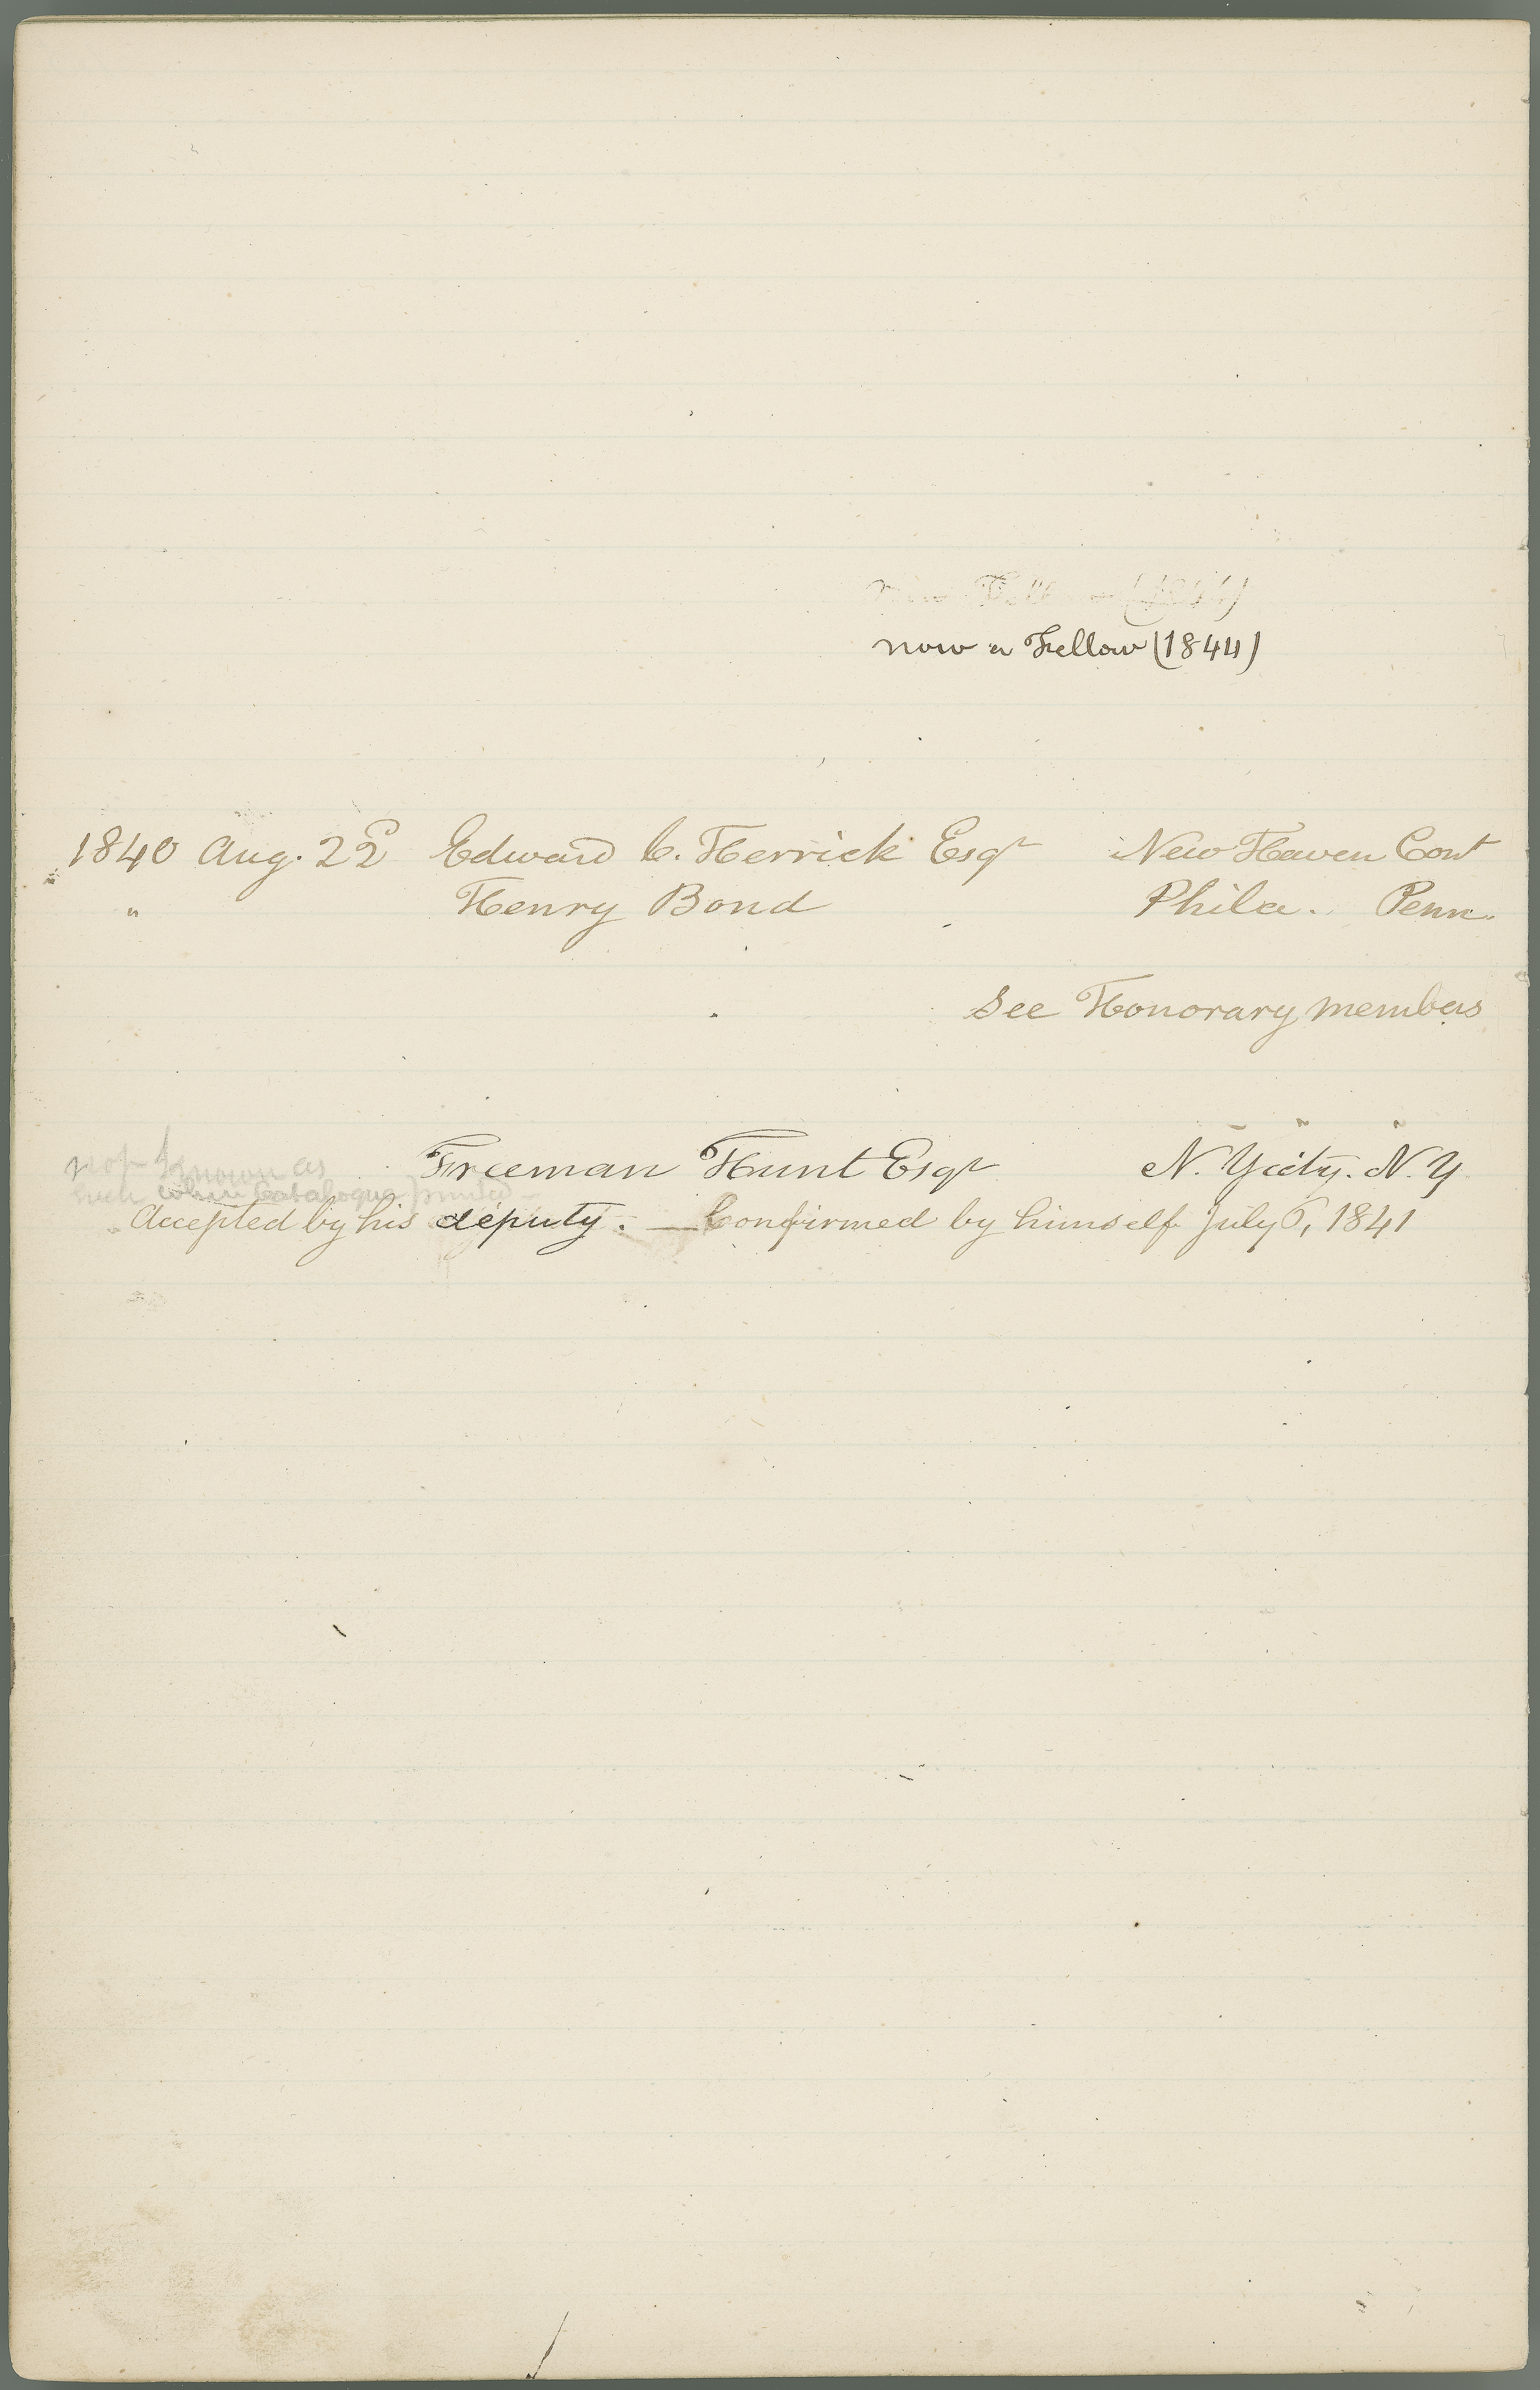 now a Fellow (1844)
1840 Aug. 22d Edward C. Herrick Esqr New Haven Cont
" Henry Bond Phila. Penn.
See Honorary members
not known as Freeman Hunt Esqr N. Y city. N. Y
such when Catalogue printed
Accepted by his deputy. — Confirmed by himself July 6, 1841